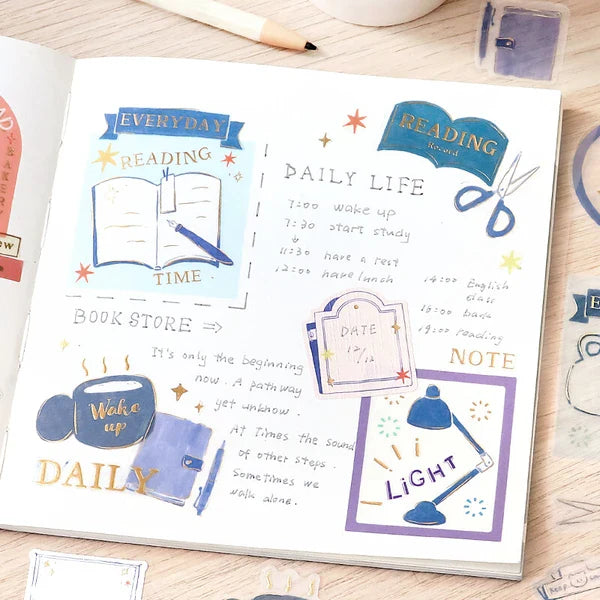 EVERYDAY
READING
TIME
BOOK STORE ⇒
It's only the beginning
now. A pathway
yet unknow.
At Times the sound
of other steps.
Sometimes we
walk alone.
Wake
up
DAILY
READING
Record
DAILY LIFE
7:00 wake up
7:30 start study
11:30 have a rest
12:00 have lunch
14:00 English
class
19:00 reading
DATE
12/12
NOTE
LiGHT